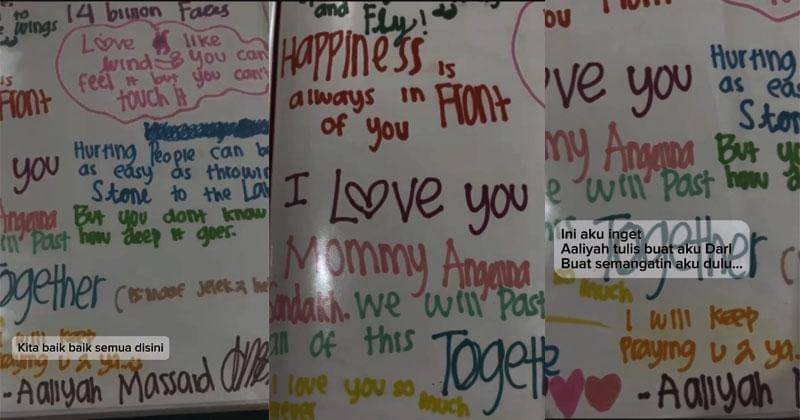 to
wings
14 billion Faces
Love is like
wind you can
feel it but you can't
touch it
Front
you
Hurting People can be
as easy as throwin
Stone to the La
Angenna
But you dont know
in Past how deep it goes.
ogether
(
will keep
Praying u 2 ya..
Kita baik baik semua disini
-Aaliyah Massaid
and Fly!
HAPPINESS is
always in Front
of you
I Love you
Mommy Angenna
ndakh. We will Past
all of this Togethe
I love you so much
ever
ou
ve you
Hurting
as eas
Ston
my Angenna But y
e will Past how d
Together (
Ini aku inget
Aaliyah tulis buat aku Darl
Buat semangatin aku dulu...
so much
I will keep
Praying u 2 ya..
-Aaliyah